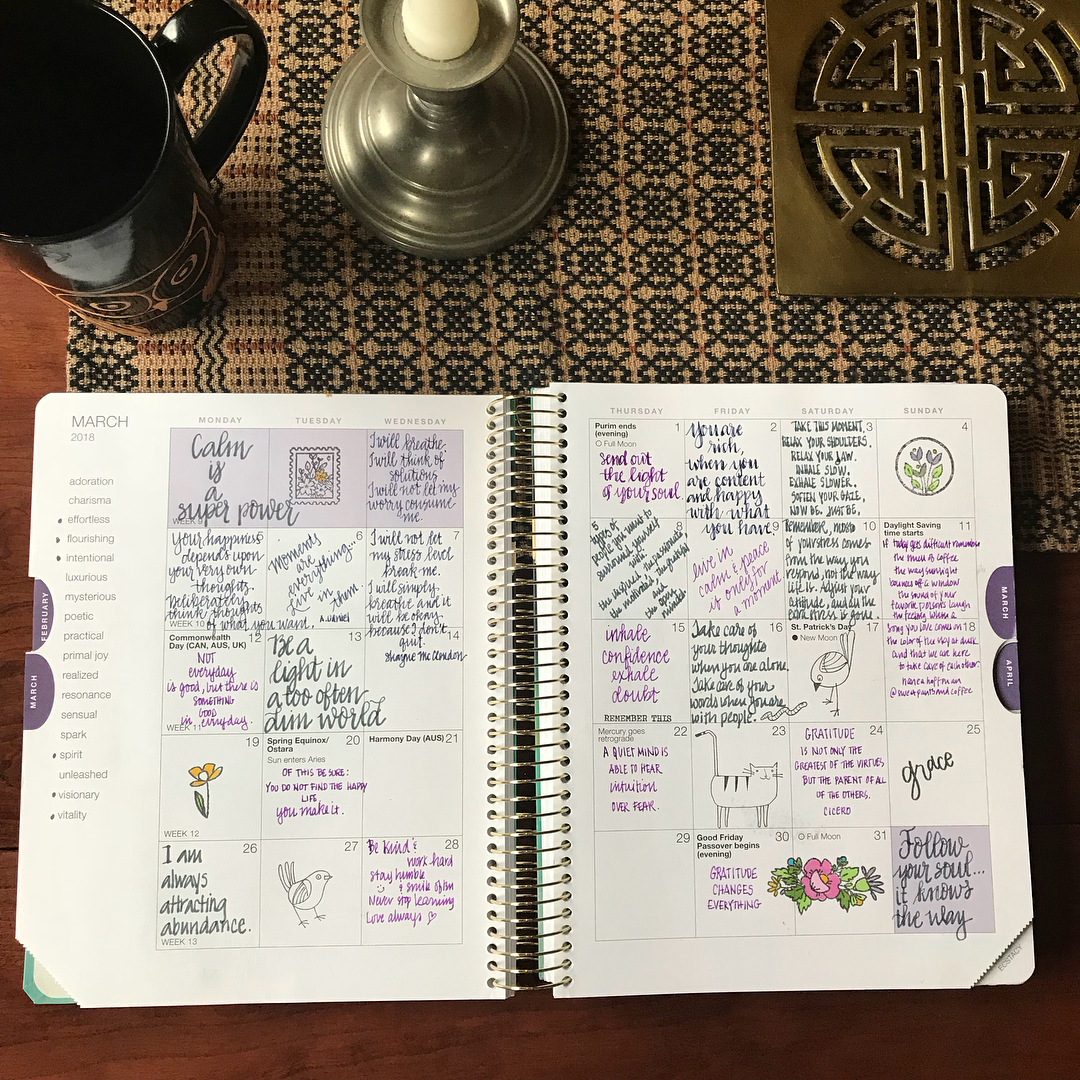 MARCH
2018
adoration
charisma
effortless
flourishing
intentional
luxurious
mysterious
poetic
practical
primal joy
realized
resonance
sensual
spark
spirit
unleashed
visionary
vitality
FEBRUARY
MARCH
MONDAY
TUESDAY
WEDNESDAY
Calm
is
a
super power
WEEK 9
I will breathe.
I will think of
solutions.
I will not let my
worry consume
me.
5
Your happiness
depends upon
your very own
thoughts.
Deliberately
think thoughts
of what you want.
WEEK 10
6
Moments
are
everything.
Live in
them.
7
I will not let
my stress level
break me.
I will simply
breathe and it
will be okay,
because I don't
quit.
Shayne McClendon
Commonwealth
Day (CAN, AUS, UK)
12
NOT
everyday
is good, but there is
SOMETHING
GOOD
in everyday.
WEEK 11
13
Be a
light in
a too often
dim world
14
19
WEEK 12
Spring Equinox/
Ostara
20
Sun enters Aries
OF THIS BE SURE:
YOU DO NOT FIND THE HAPPY
LIFE,
you make it.
Harmony Day (AUS)
21
26
I am
always
attracting
abundance.
WEEK 13
27
28
Be kind
work hard
stay humble
& smile often
Never stop learning
Love always
THURSDAY
FRIDAY
SATURDAY
SUNDAY
Purim ends
(evening)
1
Full Moon
send out
the light
of your soul.
2
you are
rich,
when you
are content
and happy
with what
you have.
3
TAKE THIS MOMENT,
RELAX YOUR SHOULDERS.
RELAX YOUR JAW.
INHALE SLOW.
EXHALE SLOWER.
SOFTEN YOUR GAZE,
NOW BE. JUST BE,
4
8
5 types of
people you want to
surround yourself
with
the inspired, the passionate
the motivated, the grateful
and the
open
minded
9
live in
calm & peace
it is only for
a moment
10
Remember, most
of your stress comes
from the way you
respond, not the way
life is. Adjust your
attitude, and all the
extra stress is gone.
Daylight Saving
time starts
11
If today gets difficult remember
the smell of coffee
the way sunlight
bounces off a window
the sound of your
favorite person's laugh
the feeling when a
song you love comes on
the color of the sky at dusk
and that we are here
to take care of each other.
nanea hoffman
@sweatpantsandcoffee
15
inhale
confidence
exhale
doubt
REMEMBER THIS
16
Take care of
your thoughts
when you are alone.
Take care of your
words when you are
with people.
St. Patrick's Day
17
New Moon
18
22
Mercury goes
retrograde
A QUIET MIND IS
ABLE TO HEAR
intuition
OVER FEAR.
23
24
GRATITUDE
IS NOT ONLY THE
GREATEST OF THE VIRTUES
BUT THE PARENT OF ALL
OF THE OTHERS.
CICERO
25
grace
29
Good Friday
30
Passover begins
(evening)
GRATITUDE
CHANGES
EVERYTHING
Full Moon
31
Follow
your soul...
it knows
the way
MARCH
APRIL
ECSTACY